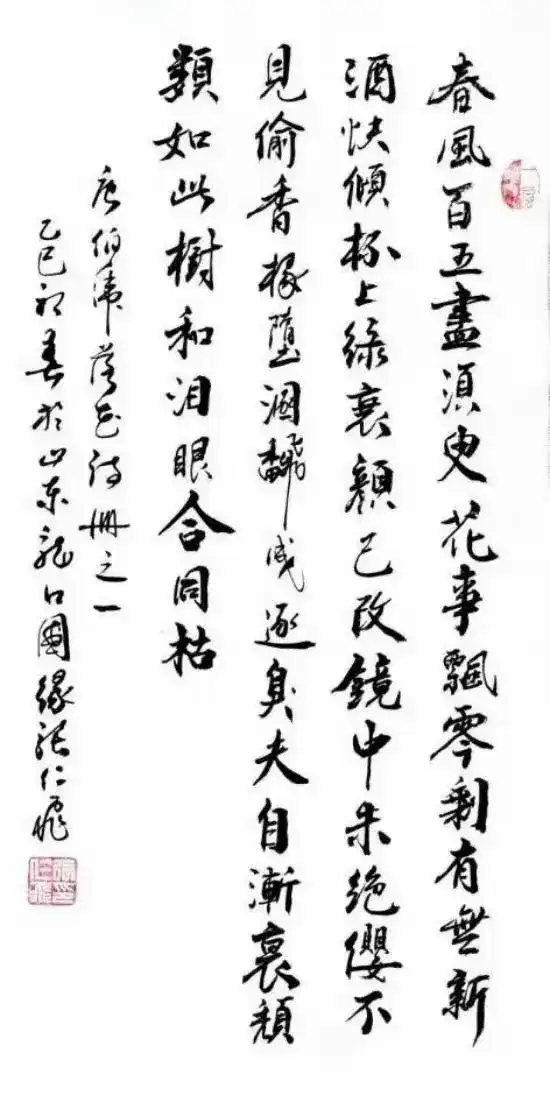 春風百五盡須臾花事飄零剩有無新
酒快傾杯上綠衰顏已改鏡中朱絕纓不
見偷香掾墮溷翻成逐臭夫自漸衰頹
類如此樹和泪眼合同枯
唐伯虎落花詩冊之一
乙巳初春於山東龍口圓緣張仁飛